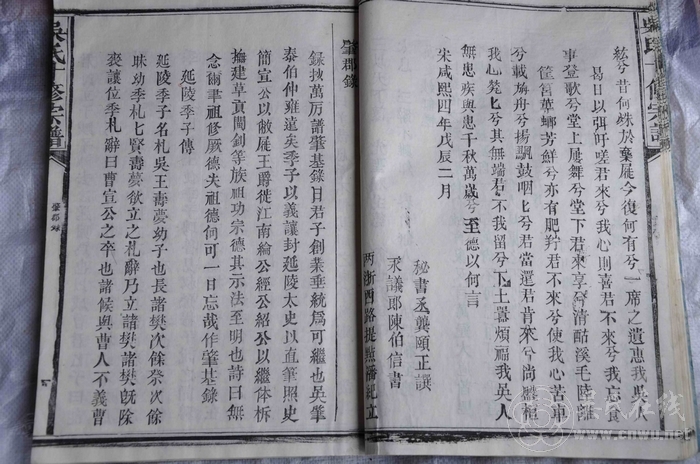 吳氏十修宗譜
紘兮昔何殊於棄屣今復何有兮一席之遺惠我吳
曷日以弭吁嗟君來兮我心則喜君不來兮我忘食
事登歌兮堂上屢舞兮堂下君來享兮清酤溪毛陸
筐筥蘋芳鮮兮亦有肥羜君不來兮使我心苦車
兮載旆舟兮揚颿鼓咽匕兮君當還君肯來兮尚
我心兮其無端君不我留兮下土暮煩福我吳人
無恵疾與患千秋萬歲兮至德以何言
宋咸熙四年戊辰二月
秘書丞龔頤正譔
承議郎陳伯信書
兩浙西路提點潘紀立
肇郡錄
錄按萬历譜肇基錄曰君子創業垂統為可繼也吳肇
泰伯仲雍遠矣季子以義讓封延陵太史以直筆照史
簡宣公以敝屣王爵徙江南綸公經公紹公以繼体析
擔建草貢閩釗等族祖功宗德其示法至明也詩曰無
念爾聿祖修厥德夫祖德何可一日忘哉作肇基錄
延陵季子傳
延陵季子名札吳王壽夢幼子也長諸樊次餘祭次餘
昧幼季札匕賢壽夢欲立之札辭乃立諸樊諸樊既除
喪讓位季札辭曰曹宣公之卒也諸候與曹人不義曹
吳氏十修宗譜
肇郡錄
吳氏在线
www.cnwu.net